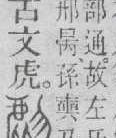 部通。故左
邢昺、孫奭
古文虎。